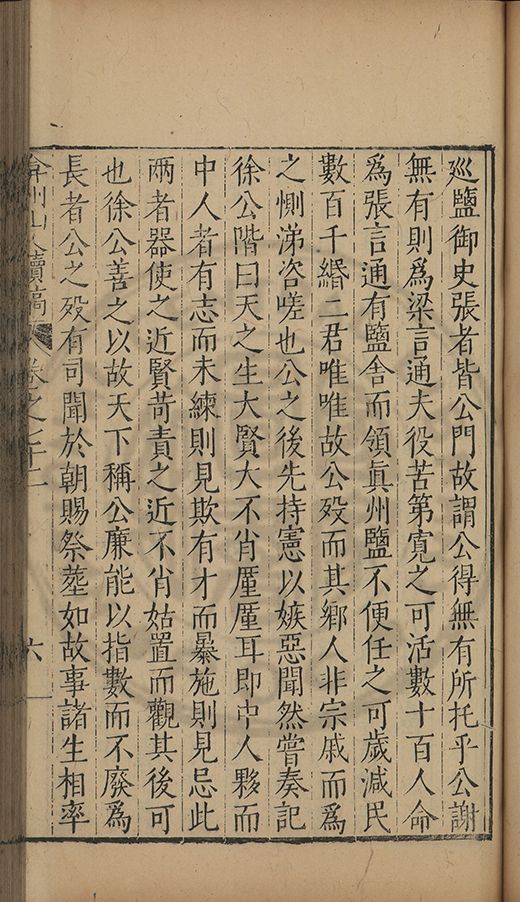 巡鹽御史張者皆公門故謂公得無有所托乎公謝
無有則爲梁言通夫役苦第寛之可活數十百人命
爲張言通有鹽舎而領眞州鹽不便任之可歲減民
數百千緡二君唯唯故公歿而其鄉人非宗戚而爲
之惻涕咨嗟也公之後先持憲以嫉惡聞然嘗奏記
徐公階曰天之生大賢大不肖厪厪耳即中人夥而
中人者有志而未練則見欺有才而暴施則見忌此
兩者器使之近賢苛責之近不肖姑置而觀其後可
也徐公善之以故天下稱公廉能以指數而不廢爲
長者公之歿有司聞於朝賜祭塟如故事諸生相率
弇州山人續稿 卷之
六